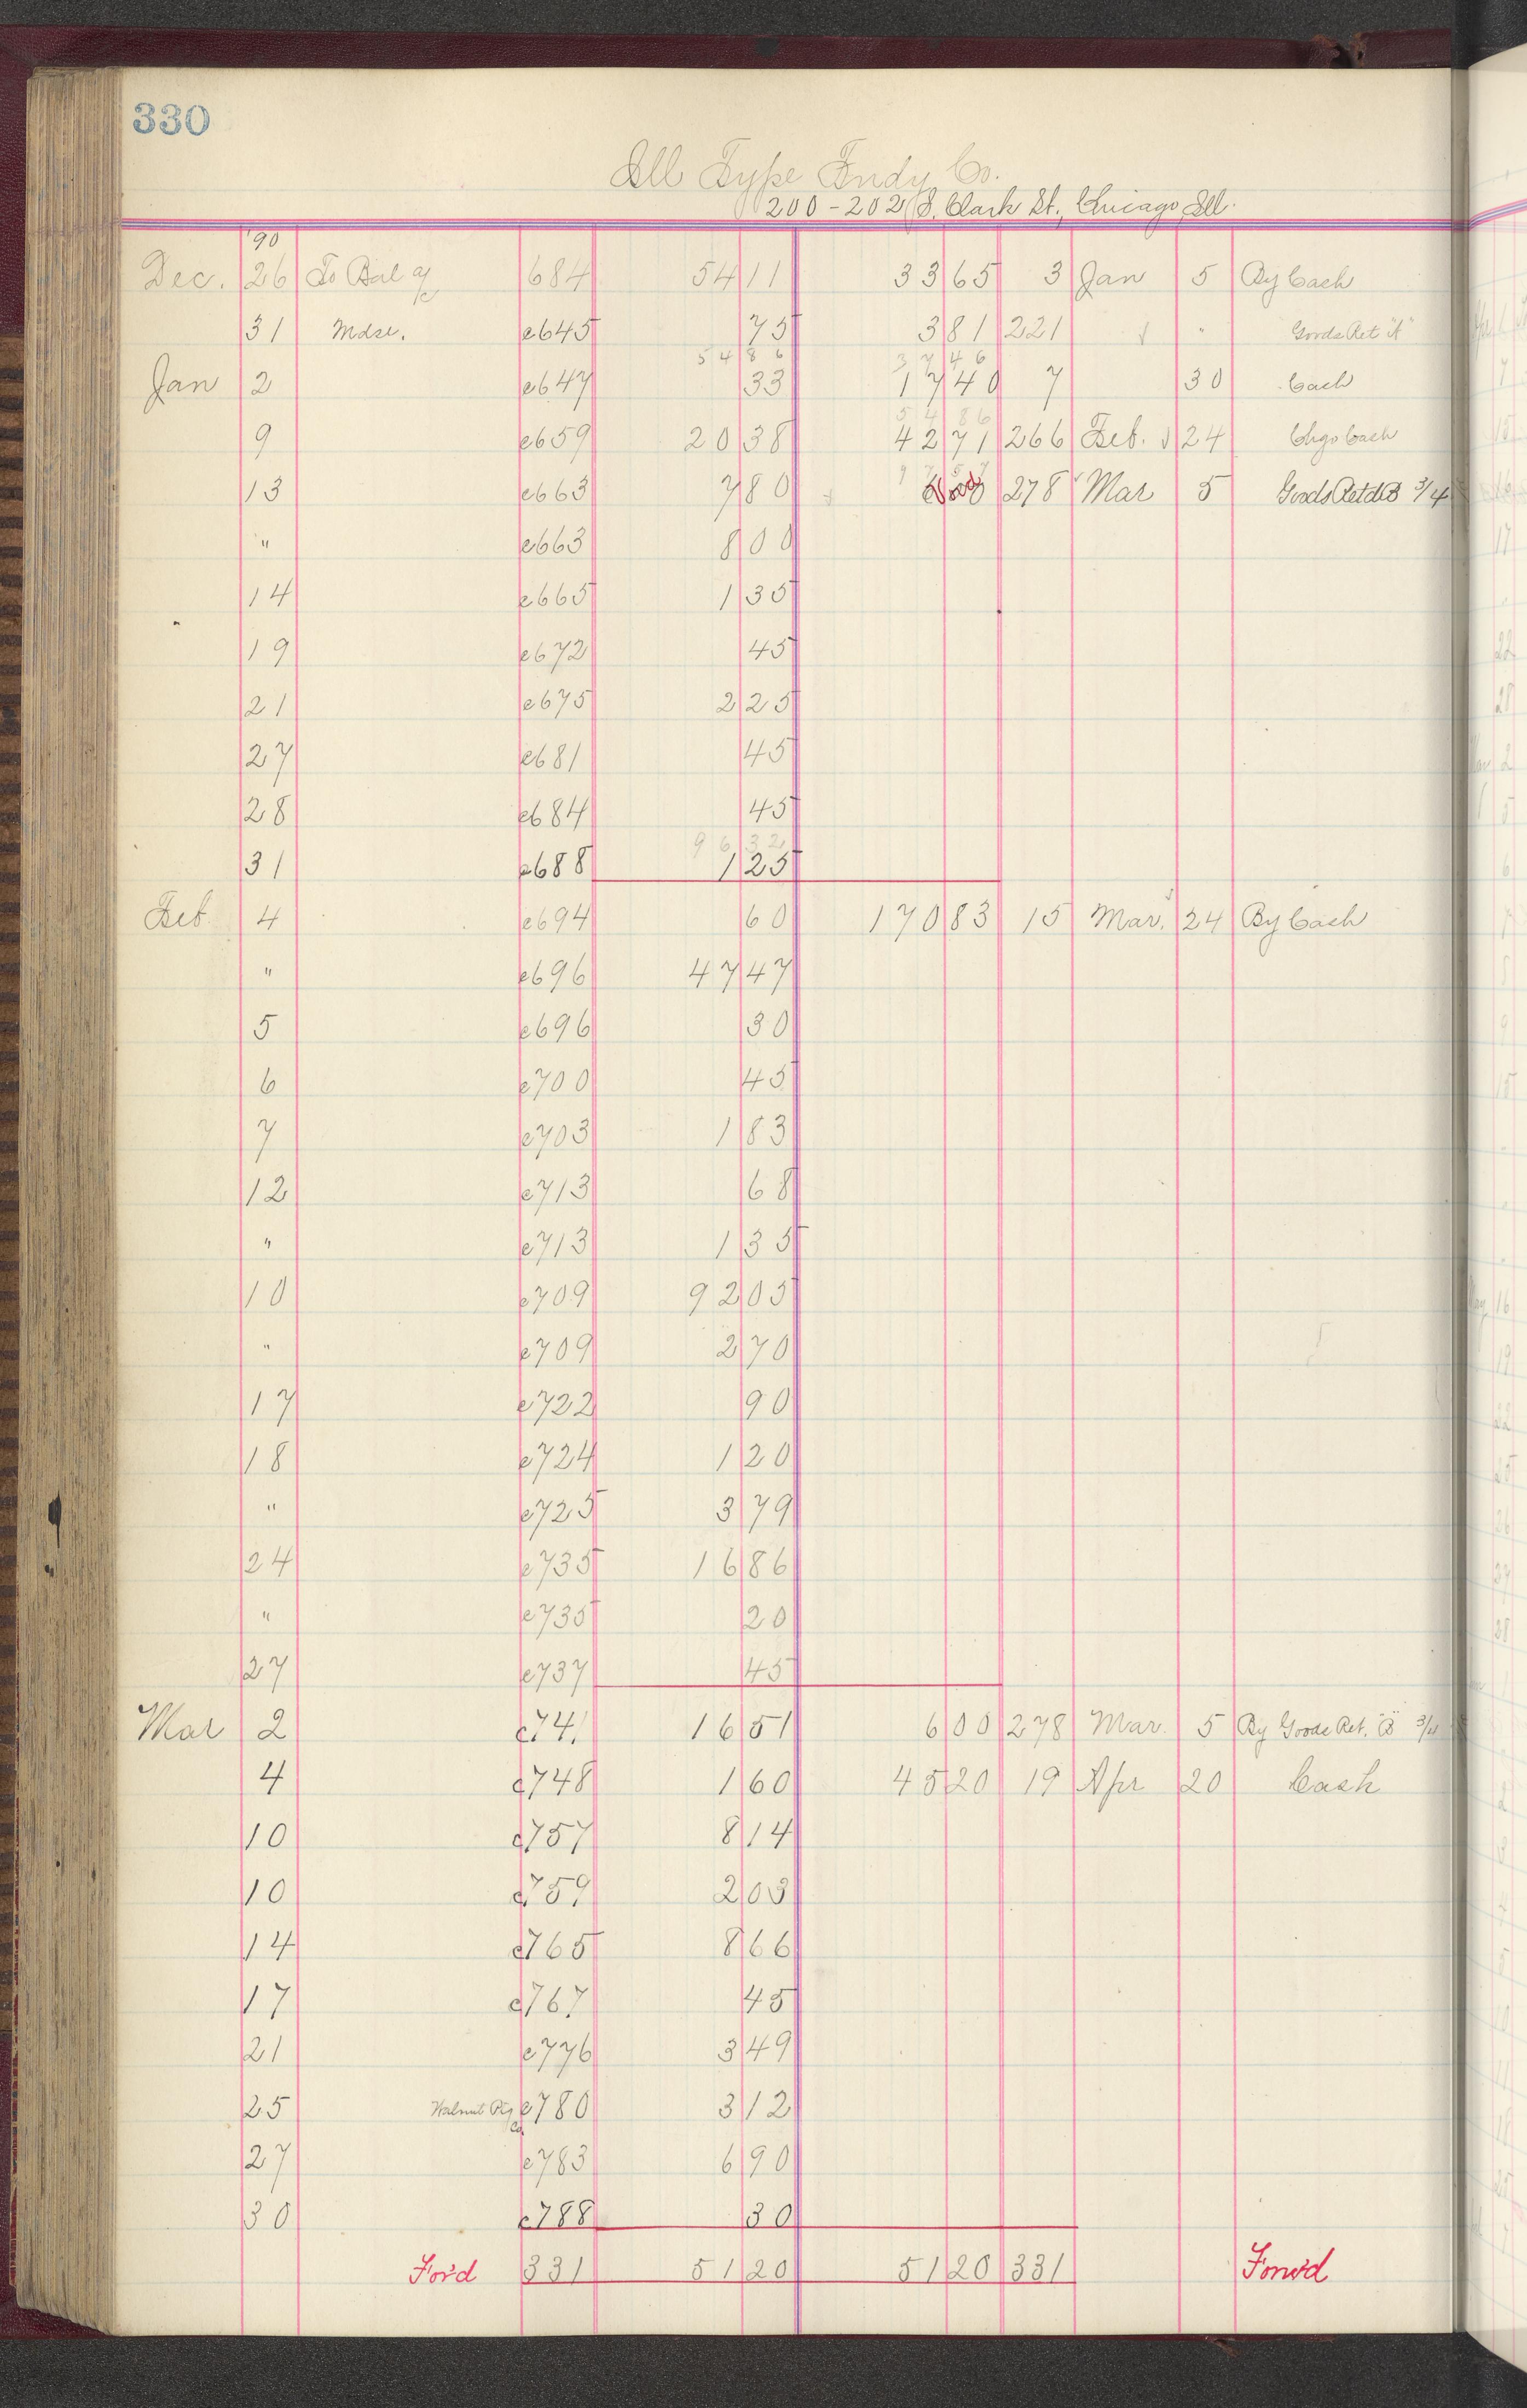 330
Ill Type Fndy Co.
200-202 S. Clark St., Chicago Ill.
'90
Dec. 26 To Bal a/c 684 54 11 33 65 3 Jan 5 By Cash
31 Mdse. e645 75 3 81 221 " Goods Ret "A"
54 86 37 46
Jan 2 e647 33 17 40 7 30 Cash
54 86
9 e659 20 38 42 71 266 Feb. 24 Chgo Cash
97 57
13 e663 7 80 6 00 Void 278 Mar 5 Goods Retd B 3/4
" e663 8 00
14 e665 1 35
19 e672 45
21 e675 2 25
27 e681 45
28 e684 45
96 32
31 e688 1 25
Feb 4 e694 60 170 83 15 Mar. 24 By Cash
" e696 47 47
5 e696 30
6 e700 45
7 e703 1 83
12 e713 68
" e713 1 35
10 e709 92 05
" e709 2 70
17 e722 90
18 e724 1 20
" e725 3 79
24 e735 16 86
" e735 20
27 e737 45
Mar 2 c741 16 51 6 00 278 Mar. 5 By Goods Ret. "B" 3/4
4 c748 1 60 45 20 19 Apr 20 Cash
10 c757 8 14
10 c759 2 03
14 c765 8 66
17 c767 45
21 e776 3 49
25 Walnut Ptg Co. e780 3 12
27 e783 6 90
30 c788 30
For'd 331 51 20 51 20 331 Forw'd